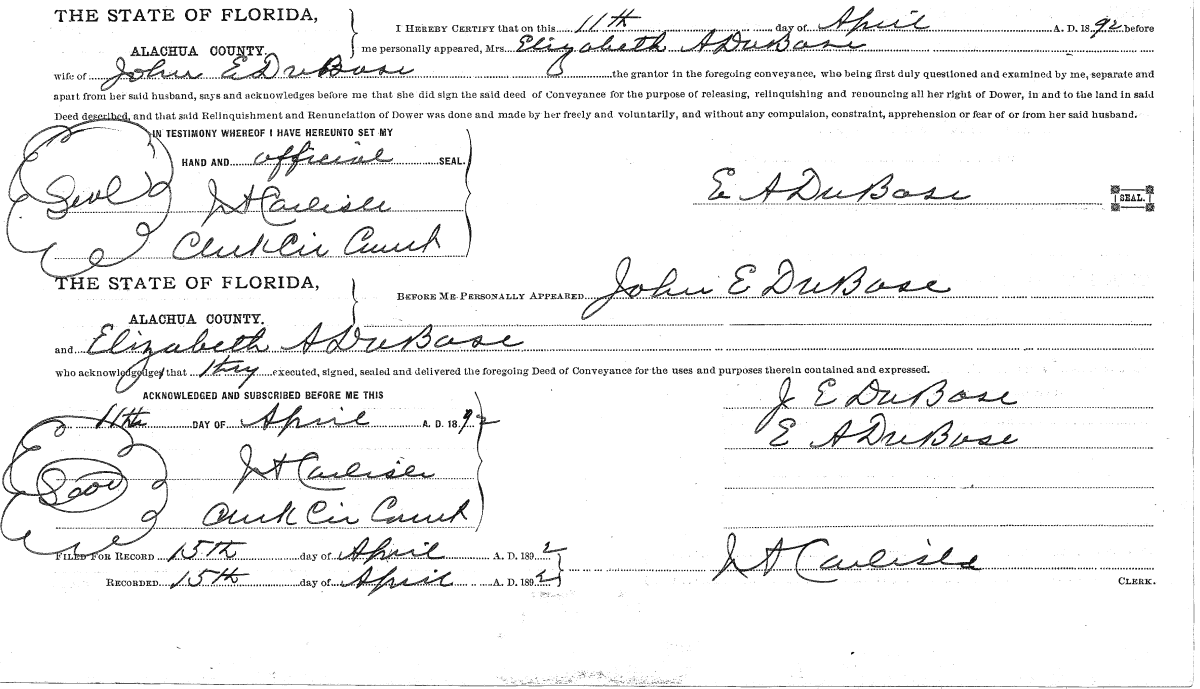 THE STATE OF FLORIDA,
ALACHUA COUNTY.
I HEREBY CERTIFY that on this 11th day of April A. D. 1892 before
me personally appeared, Mrs. Elizabeth A DuBose
wife of John E DuBose the grantor in the foregoing conveyance, who being first duly questioned and examined by me, separate and
apart from her said husband, says and acknowledges before me that she did sign the said deed of Conveyance for the purpose of releasing, relinquishing and renouncing all her right of Dower, in and to the land in said
Deed described, and that said Relinquishment and Renunciation of Dower was done and made by her freely and voluntarily, and without any compulsion, constraint, apprehension or fear of or from her said husband.
IN TESTIMONY WHEREOF I HAVE HEREUNTO SET MY
HAND AND official SEAL.
Seal
E A DuBose SEAL.
Carlisle
Clerk Cir Court
THE STATE OF FLORIDA,
ALACHUA COUNTY.
BEFORE ME PERSONALLY APPEARED John E DuBose
and Elizabeth A DuBose
who acknowledged that they executed, signed, sealed and delivered the foregoing Deed of Conveyance for the uses and purposes therein contained and expressed.
ACKNOWLEDGED AND SUBSCRIBED BEFORE ME THIS
11th DAY OF April A. D. 1892
J E DuBose
E A DuBose
Seal
Carlisle
Clerk Cir Court
FILED FOR RECORD 15th day of April A. D. 1892
RECORDED 15th day of April A. D. 1892
Carlisle
CLERK.